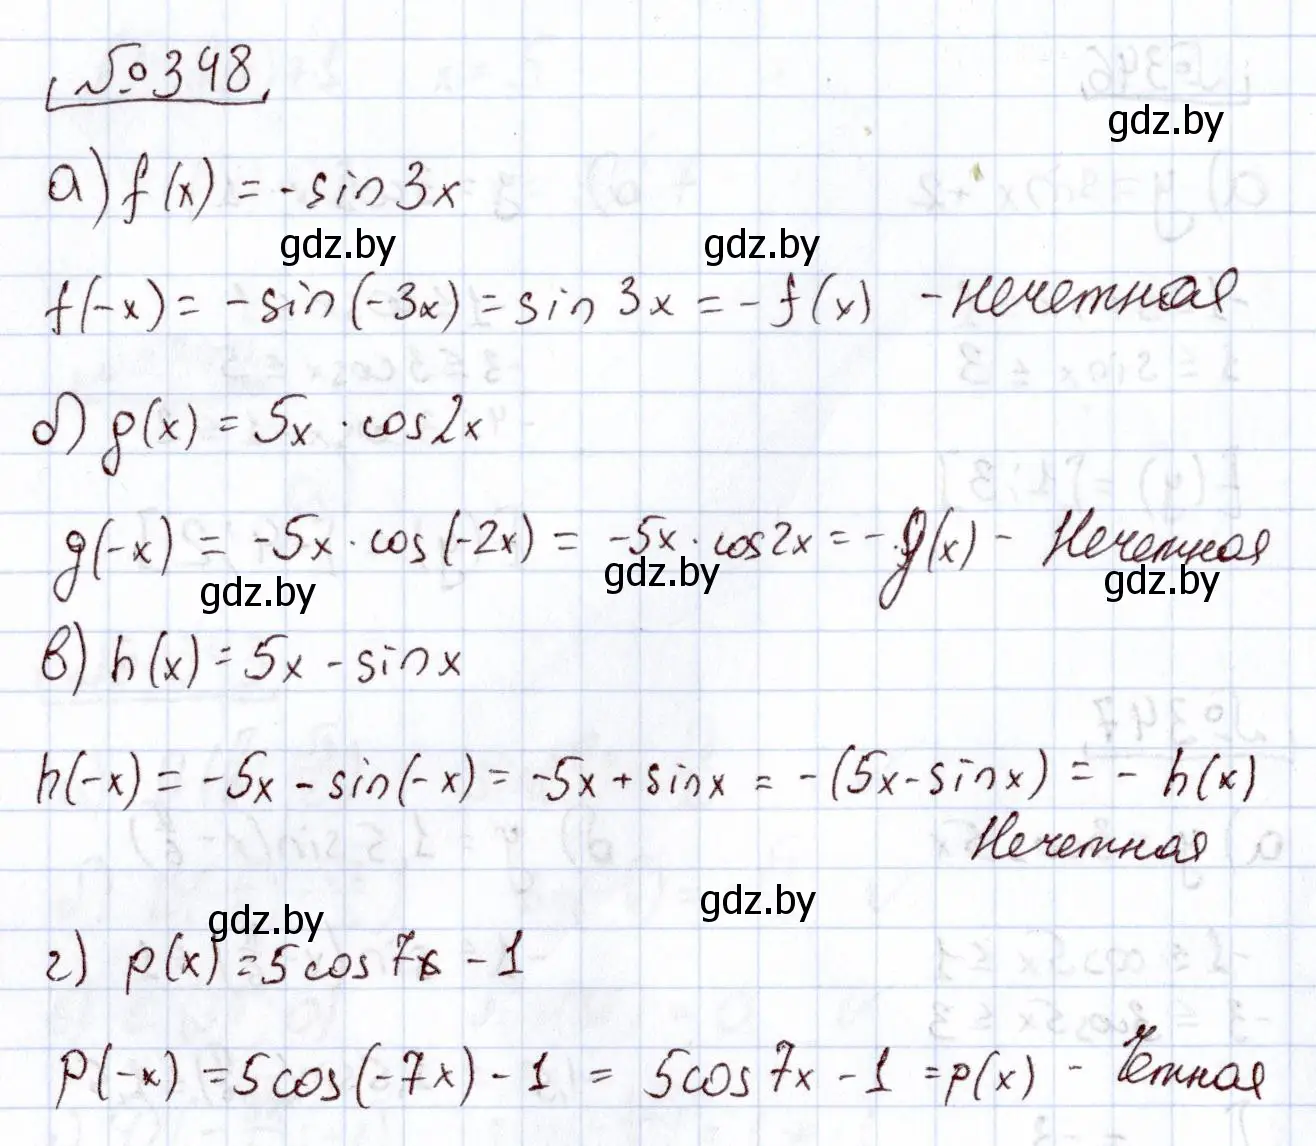 №348
gdz.by
а) f(x) = -sin3x
gdz.by gdz.by
f(-x) = -sin(-3x) = sin 3x = -f(x) - нечетная
б) g(x) = 5x · cos2x
g(-x) = -5x · cos(-2x) = -5x · cos2x = -g(x) - Нечетная
gdz.by gdz.by gdz.by
в) h(x) = 5x - sinx
h(-x) = -5x - sin(-x) = -5x + sinx = -(5x-sinx) = - h(x)
Нечетная
gdz.by gdz.by
г) p(x) = 5cos7x - 1
p(-x) = 5cos(-7x) - 1 = 5cos7x - 1 = p(x) - Четная